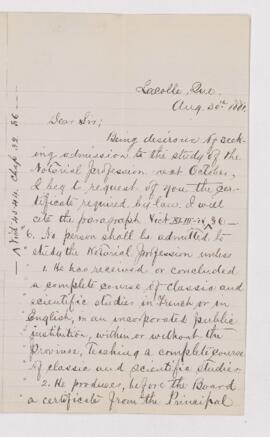 Lacolle, Que.
Aug. 30th 188
Dear Sir;
Being desirous of seek-
ing admission to the study of the
Notarial Profession next October,
I beg to request of you the cer-
tificate required by law. I will
cite the paragraph Vict
6. No person shall be admitted to
study the Notarial Profession unless
1. He has received or concluded
a complete course of classic and
scientific studies in French or in
English, in an incorporated public
institution, within or without the
Province, teaching a complete course
of classic and scientific studies
2. He produces, before the Board
a certificate from the Principal
Vict Chap. 32. 86